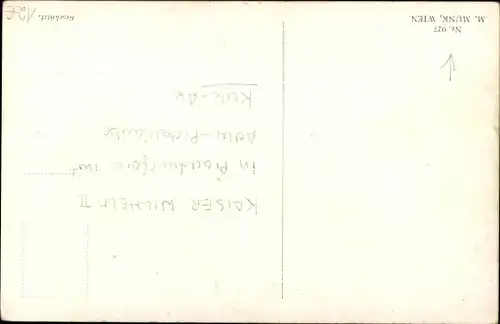 KAISER WILHELM II
in Paradeuniform mit
Adler-Pickelhaube
KuK-AK
M. MUNK, WIEN.
Nr. 927
Geschützt.